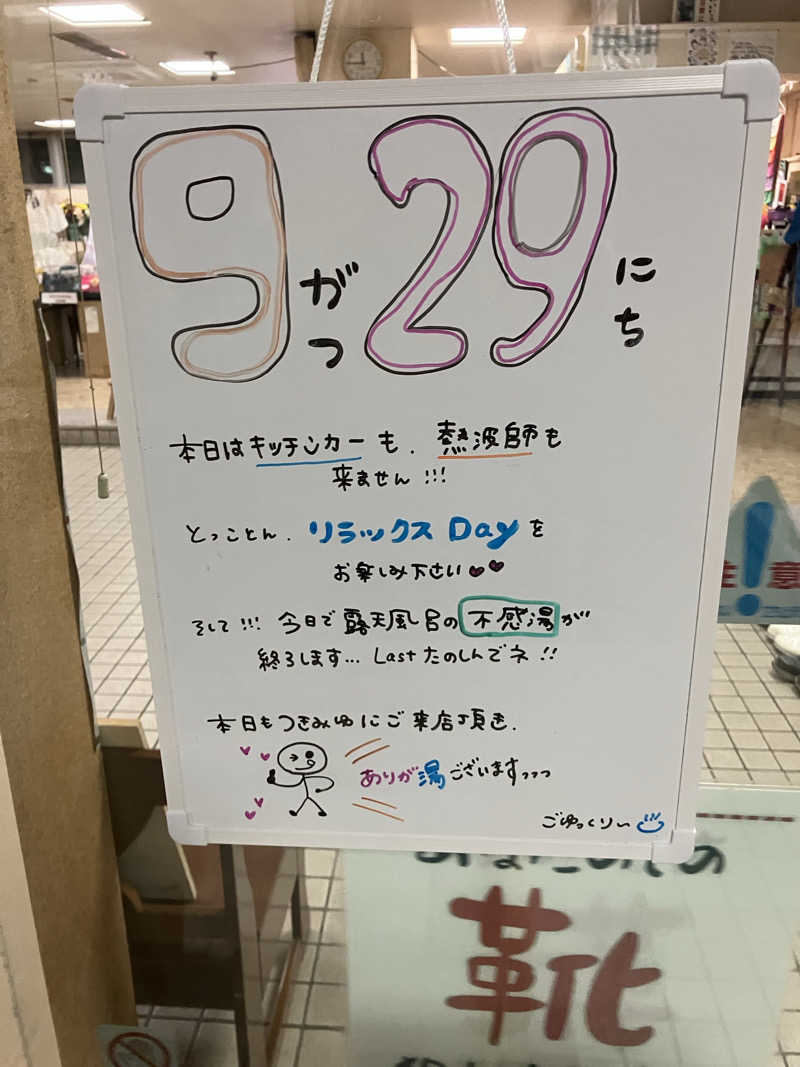 9がつ29にち
本日はキッチンカーも、熱波師も
来ません!!!
とっことん、リラックスDayを
お楽しみ下さい
そして!!! 今日で露天風呂の不感湯が
終ろします... Lastたのしんでネ!!
本日もつきみゆにご来店頂き、
ありが湯ございますっっっ
ごゆっくりぃ
注意
靴